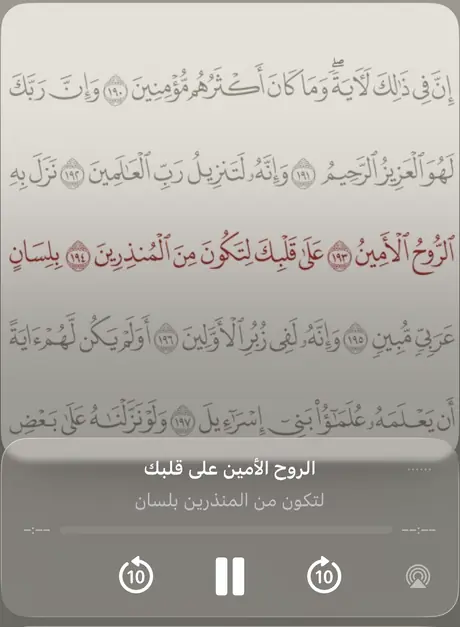 إِنَّ فِى ذَٰلِكَ لَـَٔايَةًۖ وَمَا كَانَ أَكْثَرُهُم مُّؤْمِنِينَ ١٩٠ وَإِنَّ رَبَّكَ
لَهُوَ ٱلْعَزِيزُ ٱلرَّحِيمُ ١٩١ وَإِنَّهُۥ لَتَنزِيلُ رَبِّ ٱلْعَٰلَمِينَ ١٩٢ نَزَلَ بِهِ
ٱلرُّوحُ ٱلْأَمِينُ ١٩٣ عَلَىٰ قَلْبِكَ لِتَكُونَ مِنَ ٱلْمُنذِرِينَ ١٩٤ بِلِسَانٍ
عَرَبِىٍّ مُّبِينٍ ١٩٥ وَإِنَّهُۥ لَفِى زُبُرِ ٱلْأَوَّلِينَ ١٩٦ أَوَلَمْ يَكُن لَّهُمْ ءَايَةً
أَن يَعْلَمَهُۥ عُلَمَٰٓؤُا۟ بَنِىٓ إِسْرَٰٓءِيلَ ١٩٧ وَلَوْ نَزَّلْنَٰهُ عَلَىٰ بَعْضِ
الروح الأمين على قلبك
لتكون من المنذرين بلسان
-:-- --:--
10 10